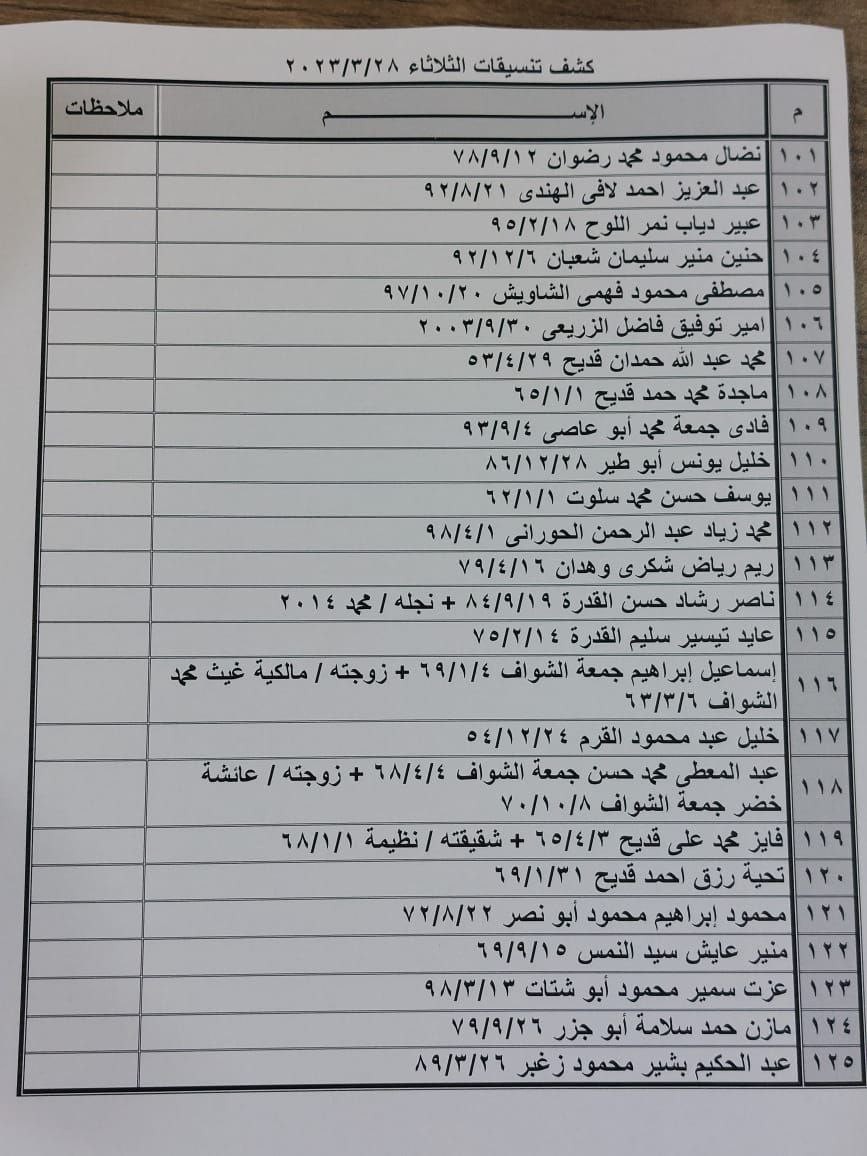 كشف تنسيقات الثلاثاء ٢٠٢٣/٣/٢٨
م الإســـــــــم ملاحظات
١٠١ نضال محمود محمد رضوان ٧٨/٩/١٢
١٠٢ عبد العزيز احمد لافى الهندى ٩٢/٨/٢١
١٠٣ عبير دياب نمر اللوح ٩٥/٢/١٨
١٠٤ حنين منير سليمان شعبان ٩٢/١٢/٦
١٠٥ مصطفى محمود فهمى الشاويش ٩٧/١٠/٢٠
١٠٦ امير توفيق فاضل الزريعى ٢٠٠٣/٩/٣٠
١٠٧ محمد عبد الله حمدان قديح ٥٣/٤/٢٩
١٠٨ ماجدة محمد حمد قديح ٦٥/١/١
١٠٩ فادى جمعة محمد أبو عاصى ٩٣/٩/٤
١١٠ خليل يونس أبو طير ٨٦/١٢/٢٨
١١١ يوسف حسن محمد سلوت ٦٢/١/١
١١٢ محمد زياد عبد الرحمن الحورانى ٩٨/٤/١
١١٣ ريم رياض شكرى وهدان ٧٩/٤/١٦
١١٤ ناصر رشاد حسن القدرة ٨٤/٩/١٩ + نجله / محمد ٢٠١٤
١١٥ عايد تيسير سليم القدرة ٧٥/٢/١٤
١١٦ إسماعيل إبراهيم جمعة الشواف ٦٩/١/٤ + زوجته / مالكية غيث محمد
الشواف ٦٣/٣/٦
١١٧ خليل عبد محمود القرم ٥٤/١٢/٢٤
١١٨ عبد المعطى محمد حسن جمعة الشواف ٦٨/٤/٤ + زوجته / عائشة
خضر جمعة الشواف ٧٠/١٠/٨
١١٩ فايز محمد على قديح ٦٥/٤/٣ + شقيقته / نظيمة ٦٨/١/١
١٢٠ تحية رزق احمد قديح ٦٩/١/٣١
١٢١ محمود إبراهيم محمود أبو نصر ٧٢/٨/٢٢
١٢٢ منير عايش سيد النمس ٦٩/٩/١٥
١٢٣ عزت سمير محمود أبو شتات ٩٨/٣/١٣
١٢٤ مازن حمد سلامة أبو جزر ٧٩/٩/٢٦
١٢٥ عبد الحكيم بشير محمود زغبر ٨٩/٣/٢٦